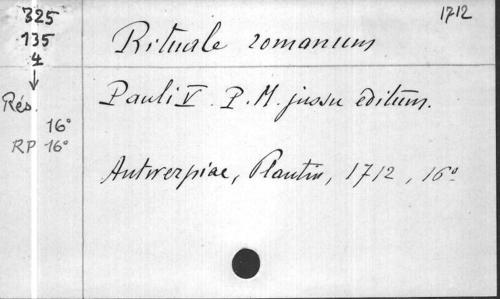 325
135
4
↓
Rés.
16°
RP 16°
1712
Rituale romanum
Pauli V. P. M. jussu editum.
Antverpiae, Plantin, 1712, 16°